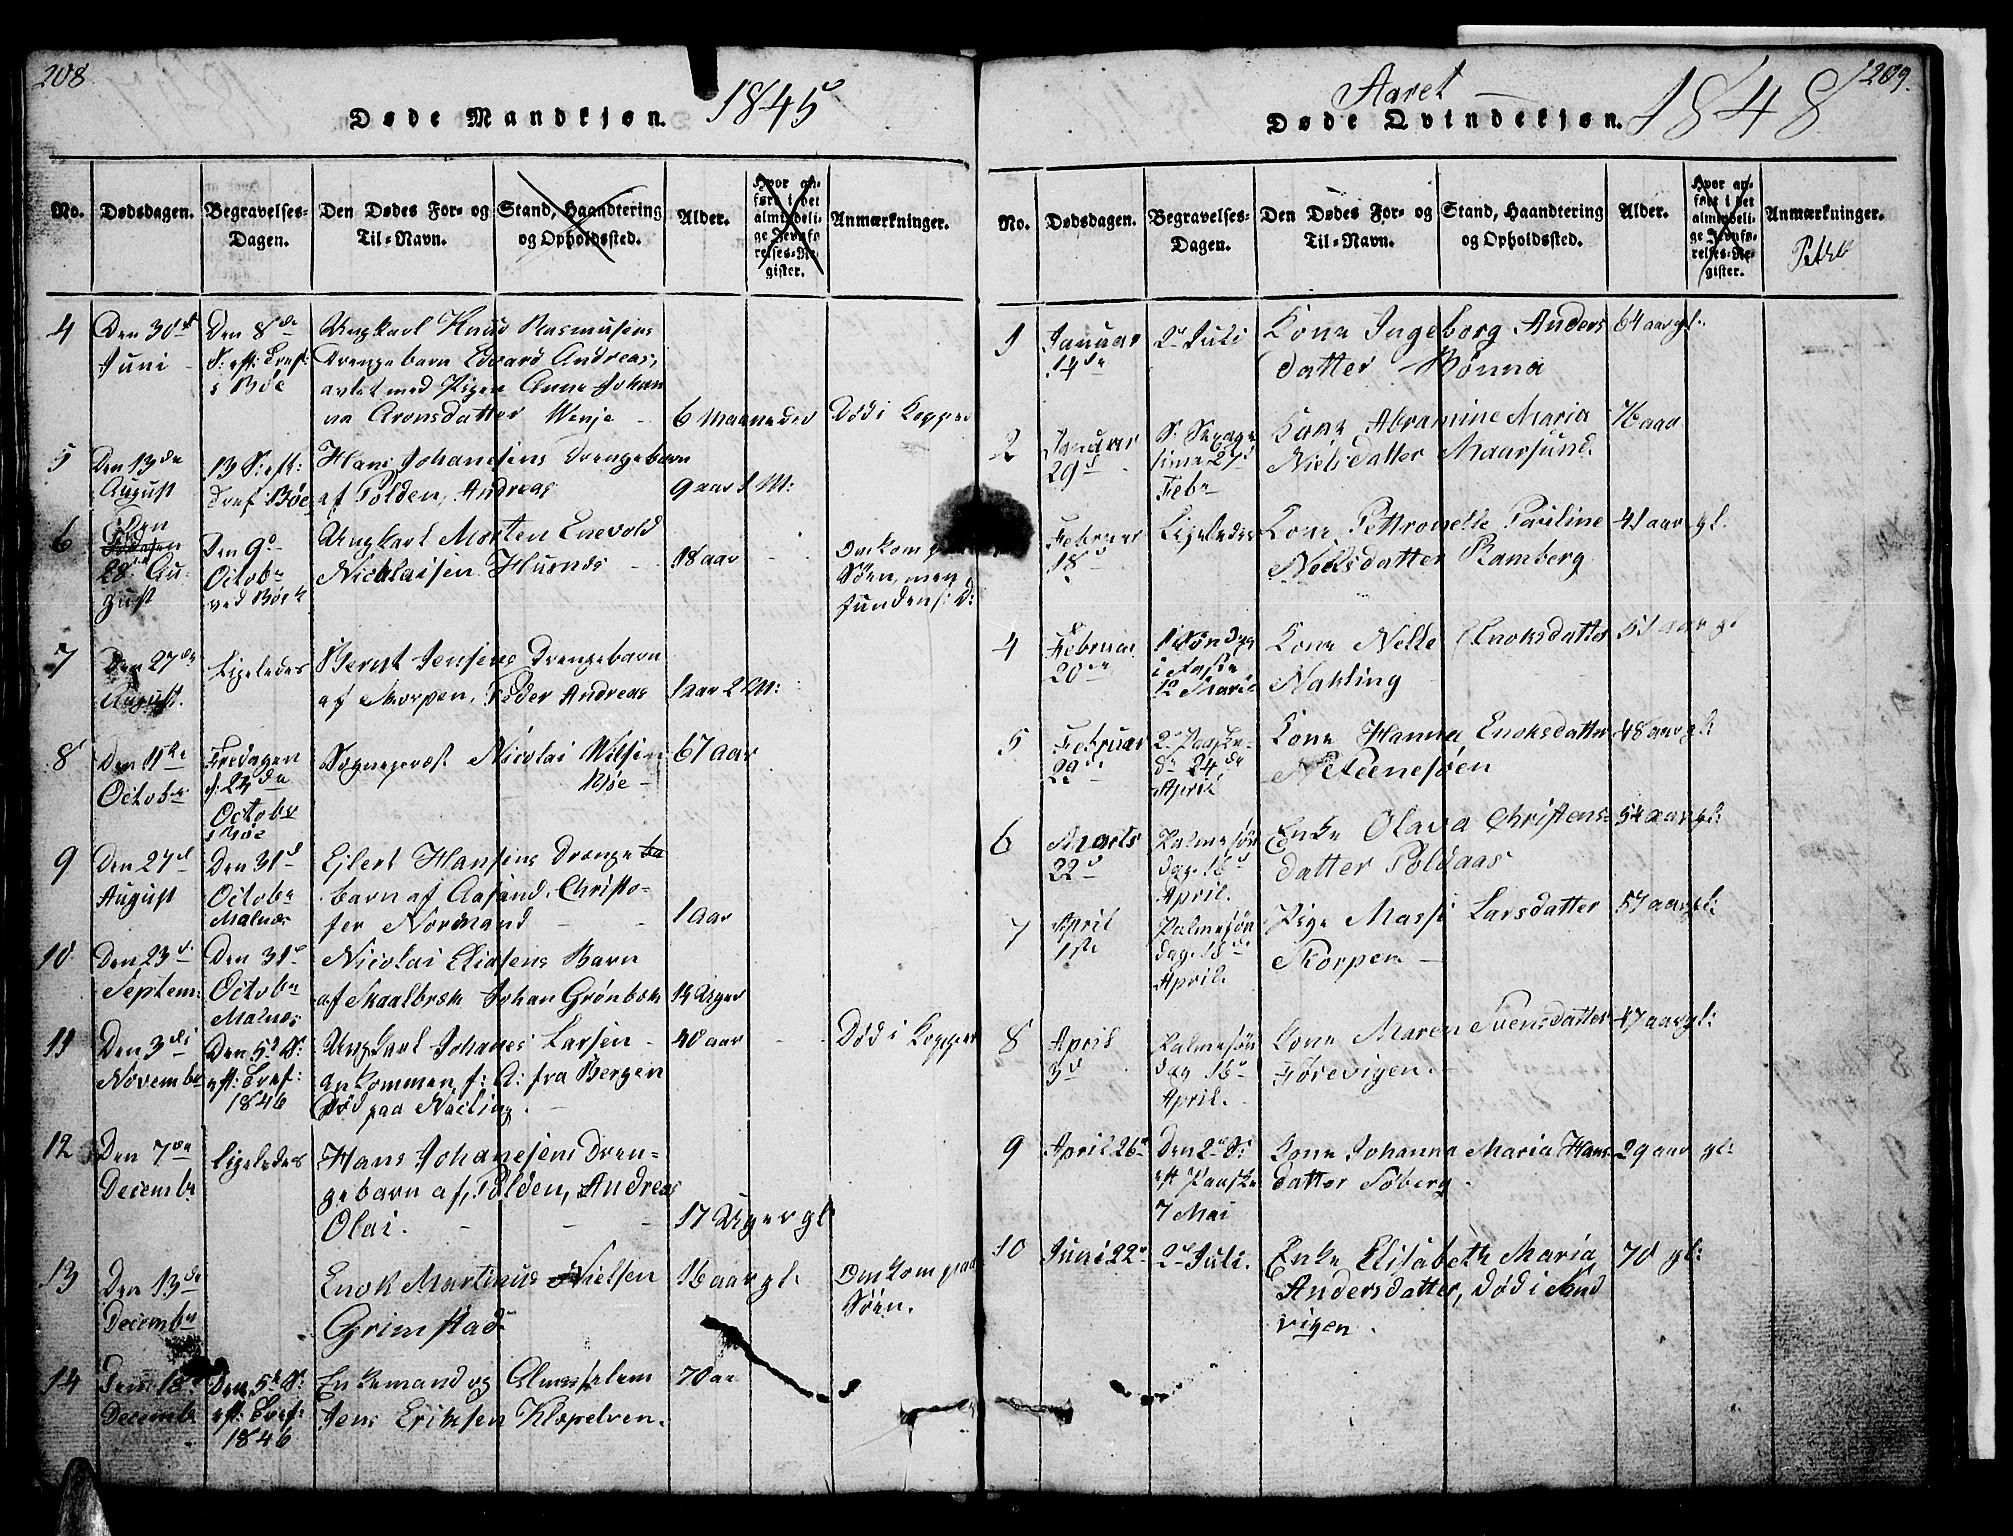 208
Døde Mandkjøn. 1845
No.
Dødsdagen.
Begravelses-
Dagen.
Den Dødes For- og
Til-Navn.
Stand, Haandtering
og Opholdssted.
Alder.
Hvor an-
ført i det
almindeli-
ge Jevnfø-
relses-Re-
gister.
Anmærkninger.
4
Den 30te
Juni
Den 8de
S: eft: Tref:
i Bøe
Ungkarl Knud Rasmusens
Drengebarn Edvard Andreas,
avlet med Pigen Anne Johan
na Aronsdatter Wenje
6 Maaneder
Død i Kopper
5
Den 13de
August
13 S: eft:
Tref: Bøe
Hans Johanesens Drengebarn
af Polden, Andreas
9 aar 1 M:
6
Den
28de Au-
gust
Den 9de
Octobr
ved Bøe K
Ungkarl Morten Enevold
Nicklaisen Husnes
18 aar
Omkom paa
Søen, men
funden
7
Den 27de
August.
Ligeledes
Bernt Jensens Drengebarn
af Skorpen, Peder Andreas
1 aar 2 M:
8
Den 11te
Octobr
Fredagen
d: 24de
Octobr
i Bøe
Sognepræst Nicolai Nilsen
Bøe
67 aar
9
Den 27d
August
Den 31d
Octobr
Malnæs
Ejlert Hansens Drenge ba
barn af Aasand, Christo-
fer Normand
1 Aar
10
Den 23d
Septem:
Den 31d
Octobr
Malnæs
Nicolai Eliasens Barn
af Skaalbræk Johan Grønbæk
14 Uger
11
Den 3di
Novembr
Den 5te S:
eft: Tref:
1846
Ungkarl Johanes Larsen
ankommen f: A: fra Bergen
Død paa Næcling.
40 aar
Død i Kopper
12
Den 7de
Decembr
Ligeledes
Hans Johanesens Dren-
gebarn af Polden, Andreas
Olai.
17 Uger gl
13
Den 13de
Decembr
Enok Martinus Nielsen
Grimstad
16 aar gl.
Omkom paa
Søen.
14
Den 18
Decembr
Den 5te S:
eft: Tref:
1846
Enkemand og Almisselem
Jens Eriksen Klopelven.
70 aa
209.
Aaret
Døde Qvindekjøn. 1848
No.
Dødsdagen.
Begravelses-
Dagen.
Den Dødes For- og
Til-Navn.
Stand, Haandtering
og Opholdssted.
Alder.
Hvor an-
ført i det
almindeli-
ge Jevnfø-
relses-Re-
gister.
Anmærkninger.
1
Januar
14de
2d Juli
Kone Ingeborg Anders
datter Rønna
64 aar gl.
2
Januar
29d
S. Sexage
sima 27d
Febr
Kone Abramine Maria
Nielsdatter Maarsund.
76 aar
3
Februar
18d
Ligeledes
Kone Pettronelle Pauline
Neelsdatter Ramberg
41 aar gl.
4
Februar
20de
1 Søndag
i Faste
12 Marts
Kone Nelle Enoksdatter
Nakling
51 aar gl
5
Februar
29de
2d Paaske
d: 24de
April
Kone Hanna Enoksdatter
Steenesøen
48 aar gl:
6
Marts
22d
Palmesøn
dag. 16d
April.
Enke Olava Christens-
datter Poldaas
54 aar gl:
7
April
1ste
Palmesøn
dag. 16de
April.
Pige Massi Larsdatter
Skorpen
57 aar gl:
8
April
3d
Palmesøn
dag 16d
April.
Kone Maren Svensdatter
Førevigen.
47 aar gl:
9
April 26d
Den 2d S:
eft Paaske
7 Mai
Kone Johanna Maria Hans
datter Søberg.
29 aar gl:
10
Juni 22d
2d Juli.
Enke Elisabeth Maria
Andersdatter, død i Sand
vigen.
70 gl: